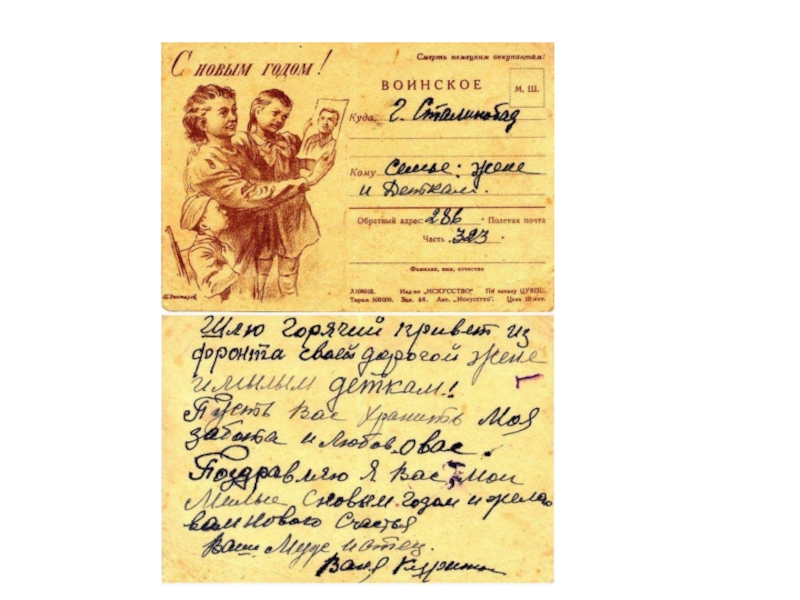 С НОВЫМ ГОДОМ!
Смерть немецким оккупантам!
ВОИНСКОЕ
М. Ш.
Куда г. Сталинобад
Кому семье: жене
и Деткам.
Обратный адрес: 286 Полевая почта
Часть 323
Фамилия, имя, отчество
Изд-во „ИСКУССТВО" По заказу
Тираж 500000. Зак. Лит. „Искусство". Цена
Шлю горячий привет из
фронта своей дорогой жене
и милым деткам!
Пусть Вас хранить Моя
забота и любов о вас.
Поздравляю я Вас Мои
Милые с новым годом и желаю
вам нового счастья
Ваш Муж и отец.
Ваня